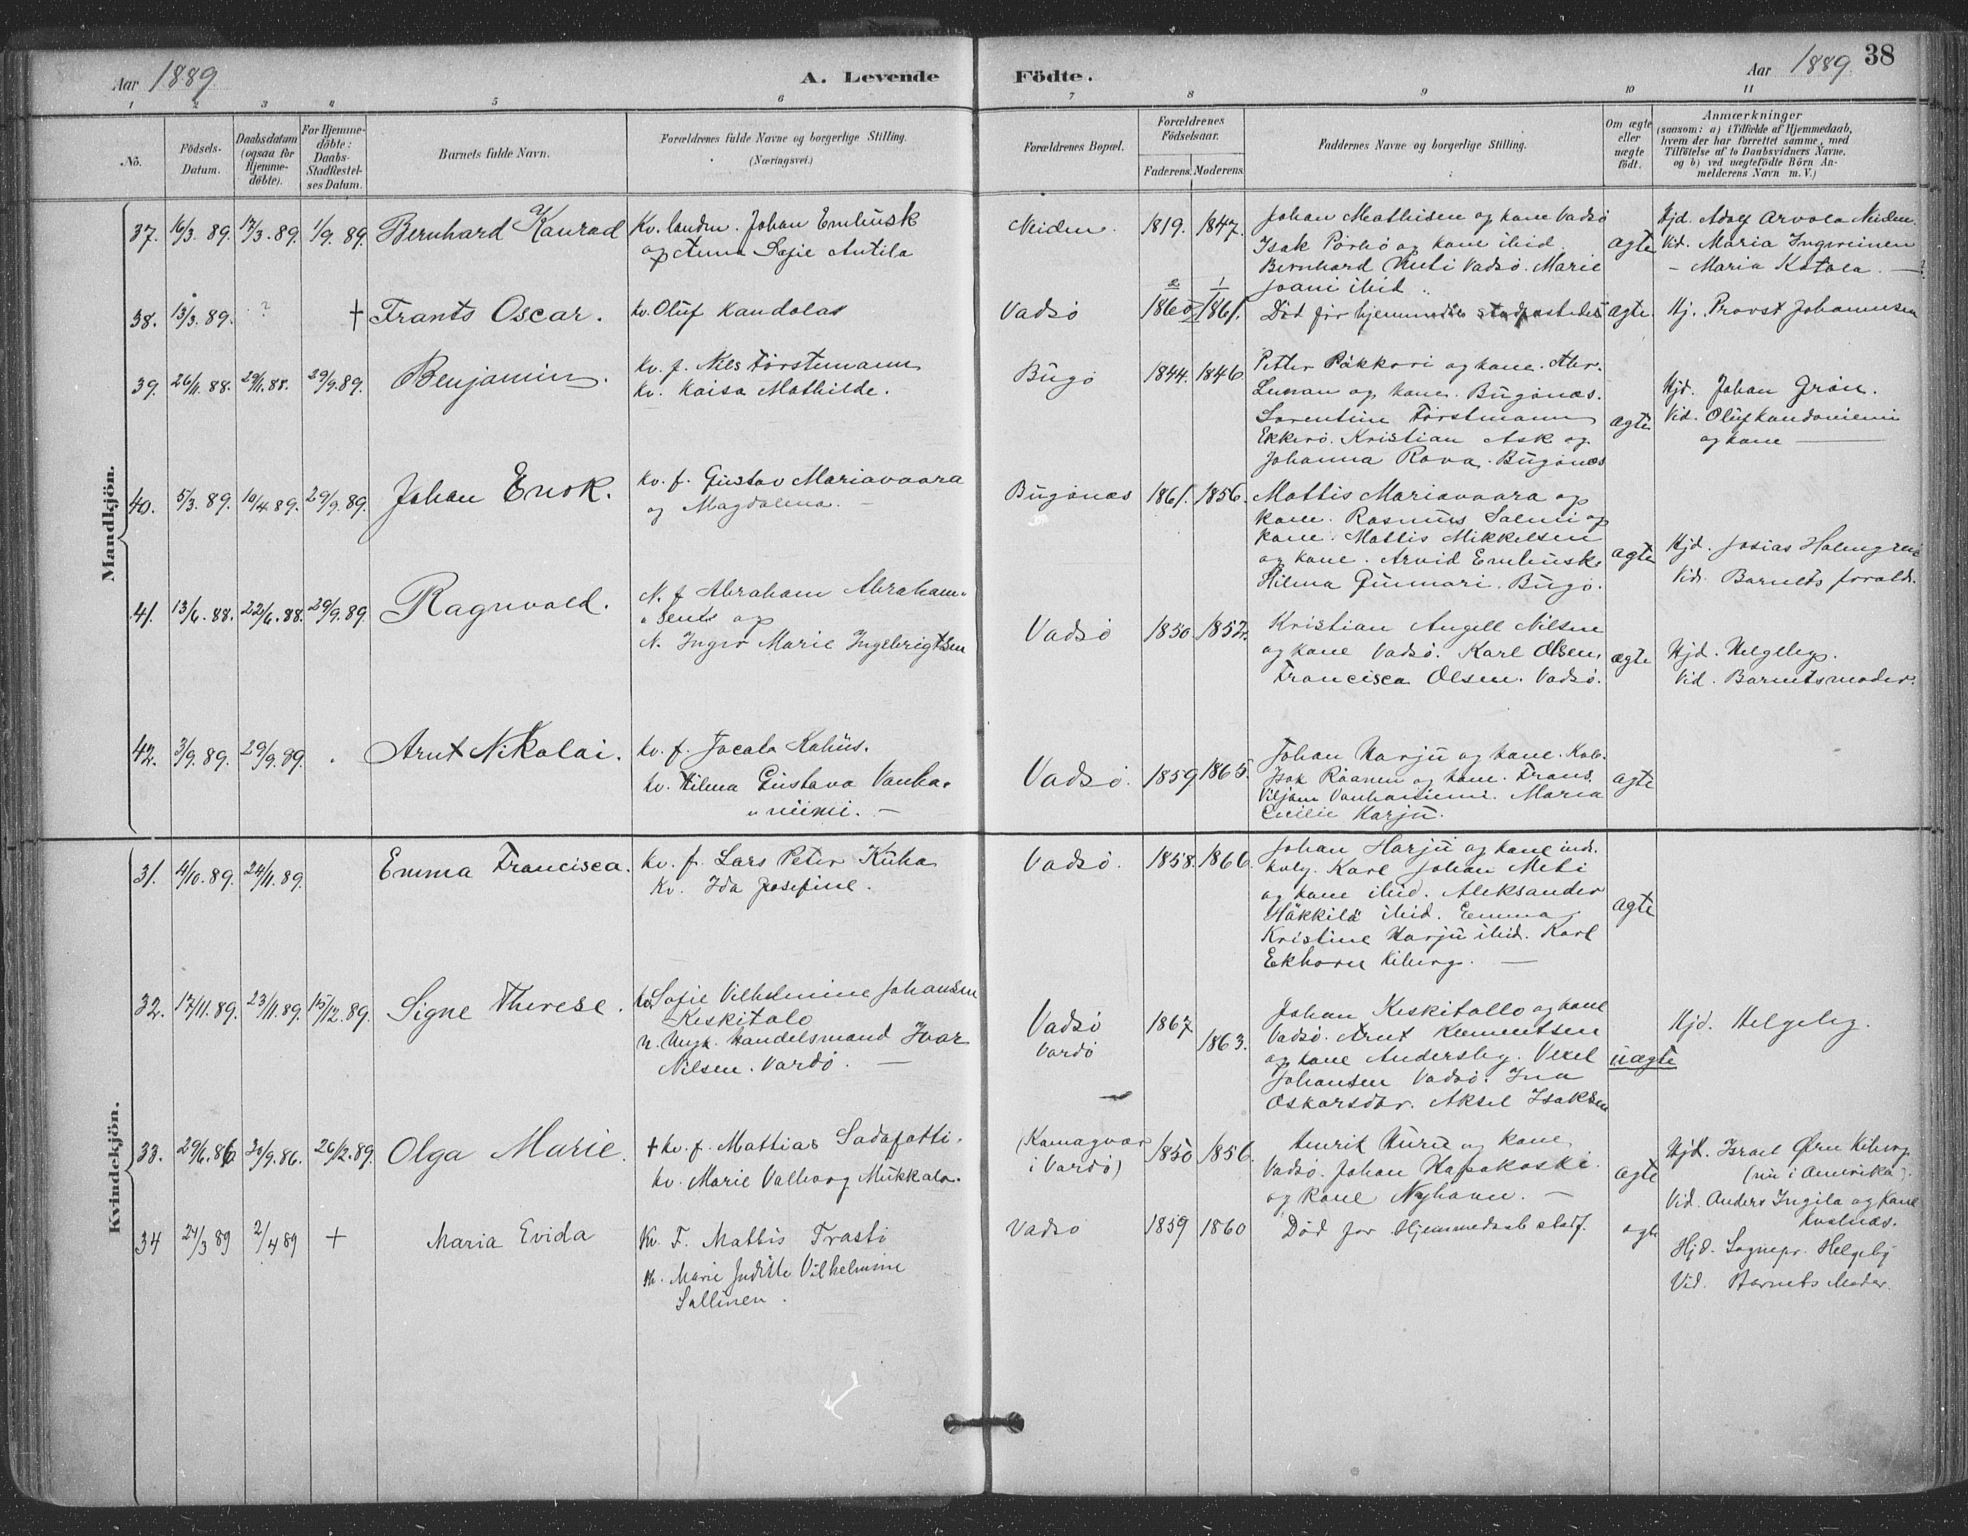 Aar 1889
A. Levende
Födte.
Aar 1889. 38
1 2 3 4 5 6 7 8 9 10 11
No.
Födsels-
Datum.
Daabsdatum
(ogsaa for
Hjemme-
döbte).
For Hjemme-
döbte:
Daabs-
Stadfæstel-
ses Datum.
Barnets fulde Navn.
Forældrenes fulde Navne og borgerlige Stilling.
(Næringsvei.)
Forældrenes Bopæl.
Forældrenes
Födselsaar.
Faderens. Moderens.
Faddernes Navne og borgerlige Stilling.
Om ægte
eller
uægte
födt.
Anmærkninger
(saasom: a) i Tilfælde af Hjemmedaab,
hvem der har forrettet samme, med
Tilföielse af to Daabsvidners Navne,
og b) ved uægtefödte Börn An-
melderens Navn m. V.)
Mandkjön.
37. 16/3 89. 17/3 89. 1/9 89. Bernhard Konrad
Kv. landm. Johan Emhusk
og Anna Sofie Antila
Neiden. 1819. 1847.
Johan Mathisen og kone Vadsø
Isak og kone ibid.
Bernhard Vadsø. Marie
ibid.
ægte
Hjd. Adolf Arvola Neiden.
Vid. Maria
- Maria Katola. -
38. 13/3 89. ? † Frants Oscar.
kv. Oluf Kandolas
Vadsø 1860 1861.
Død før hjemmedåb stadfæstedes
ægte
Hj. Provst Johannesen
39. 26/11 88. 29/11 88. 29/9 89. Benjamin.
kv. f. Nils Förstemann
kv. Kaisa Mathilde.
Bugø 1844. 1846
Petter Påkkari og kone. Abr.
og kone. Bugønæs.
Lorentine Förstmann
Ekkerø. Kristian Ask og
Johanna Rova. Bugønæs
ægte
Hjd. Johan Grøn.
Vid. Oluf Kandoniemi
og kone —
40. 5/3 89. 10/4 89. 29/9 89. Johan Enok.
kv. f. Gustav Mariavaara
og Magdalena. -
Bugønæs 1861. 1856.
Mattis Mariavaara og
kone. Rasmus Salmi og
kone. Mattis Mikkelsen
og kone. Arvid Emhusk
Hilma Gunnari. Bugø.
ægte
Hjd. Josias Holmgren
Vid. Barnets foræld.
41. 13/6 88. 22/6 88. 29/9 89. Ragnvald.
N. f Abraham Abraham-
"sens og
N. Inger Marie Ingebrigtsen
Vadsø 1850. 1852.
Kristian Angell Nilsen
og kone Vadsø. Karl Olsen,
Francisca Olsen. Vadsø.
ægte
Hjd. Helgeby.
Vid. Barnets moder.
42. 3/9. 89. 29/9. 89. . Arnt Nikolai.
kv. f. Jacob Kohus.
kv. Hilma Gustava Vanha-
"niemi. -
Vadsø. 1859 1865.
Johan Harju og kone. Kolv.
Isak Råanen og kone. Frans
Viljam Vanhaniemi. Maria
Cecilie Harju.
ægte
Kvindekjön.
31. 4/10. 89. 24/11. 89. Emma Francisca.
kv. f. Lars Peter Kuha
kv. Ida Josefine.
Vadsø. 1858. 1866.
Johan Harju og kone ind.
Karl Johan Meti
og kone ibid. Aleksander
Håkkilä ibid. Emma
Kristine Harju ibid. Karl
Ekhorn Kiberg. —
ægte
32. 17/11. 89. 23/11 89. 15/12. 89. Signe Therese.
kv. Sofie Vilhelmine Johansen
Keskitalo
n. Ungk. Handelsmand Ivar
Nilsen. Vardø. —
Vadsø
Vardø
1867 1863.
Johan Keskitallo og kone
Vadsø. Arnt Klementsen
og kone Andersby.
Johansen Vadsø. Ina
Oskarsdtr. Aksel Isaksen
uægte
Hjd. Helgeby.
33. 29/6. 86 30/9. 86. 26/12. 89. Olga Marie.
† kv. f. Mattias Sodafotti.
kv. Marie Valborg Mukkala.
(Komagvær
i Vardø)
1850 1856.
Henrik Huru og kone
Vadsø. Johan Hapakoski
og kone Nyhavn. -
ægte
Hjd. Israel Ørn Kiberg
(nu i Amerika).
Vid. Anders Ingila og kone
Kvalnæs.
34 24/3 89 2/4 89 + Maria Evida
Kv. F. Mattis Trasti
kv. Marie Juditte Vilhelmine
Sallinen.
Vadsø 1859 1860
Død før Hjemmedaab stadf.
ægte
Hjd. Sognepr. Helgeby
Vid. Barnets Moder.